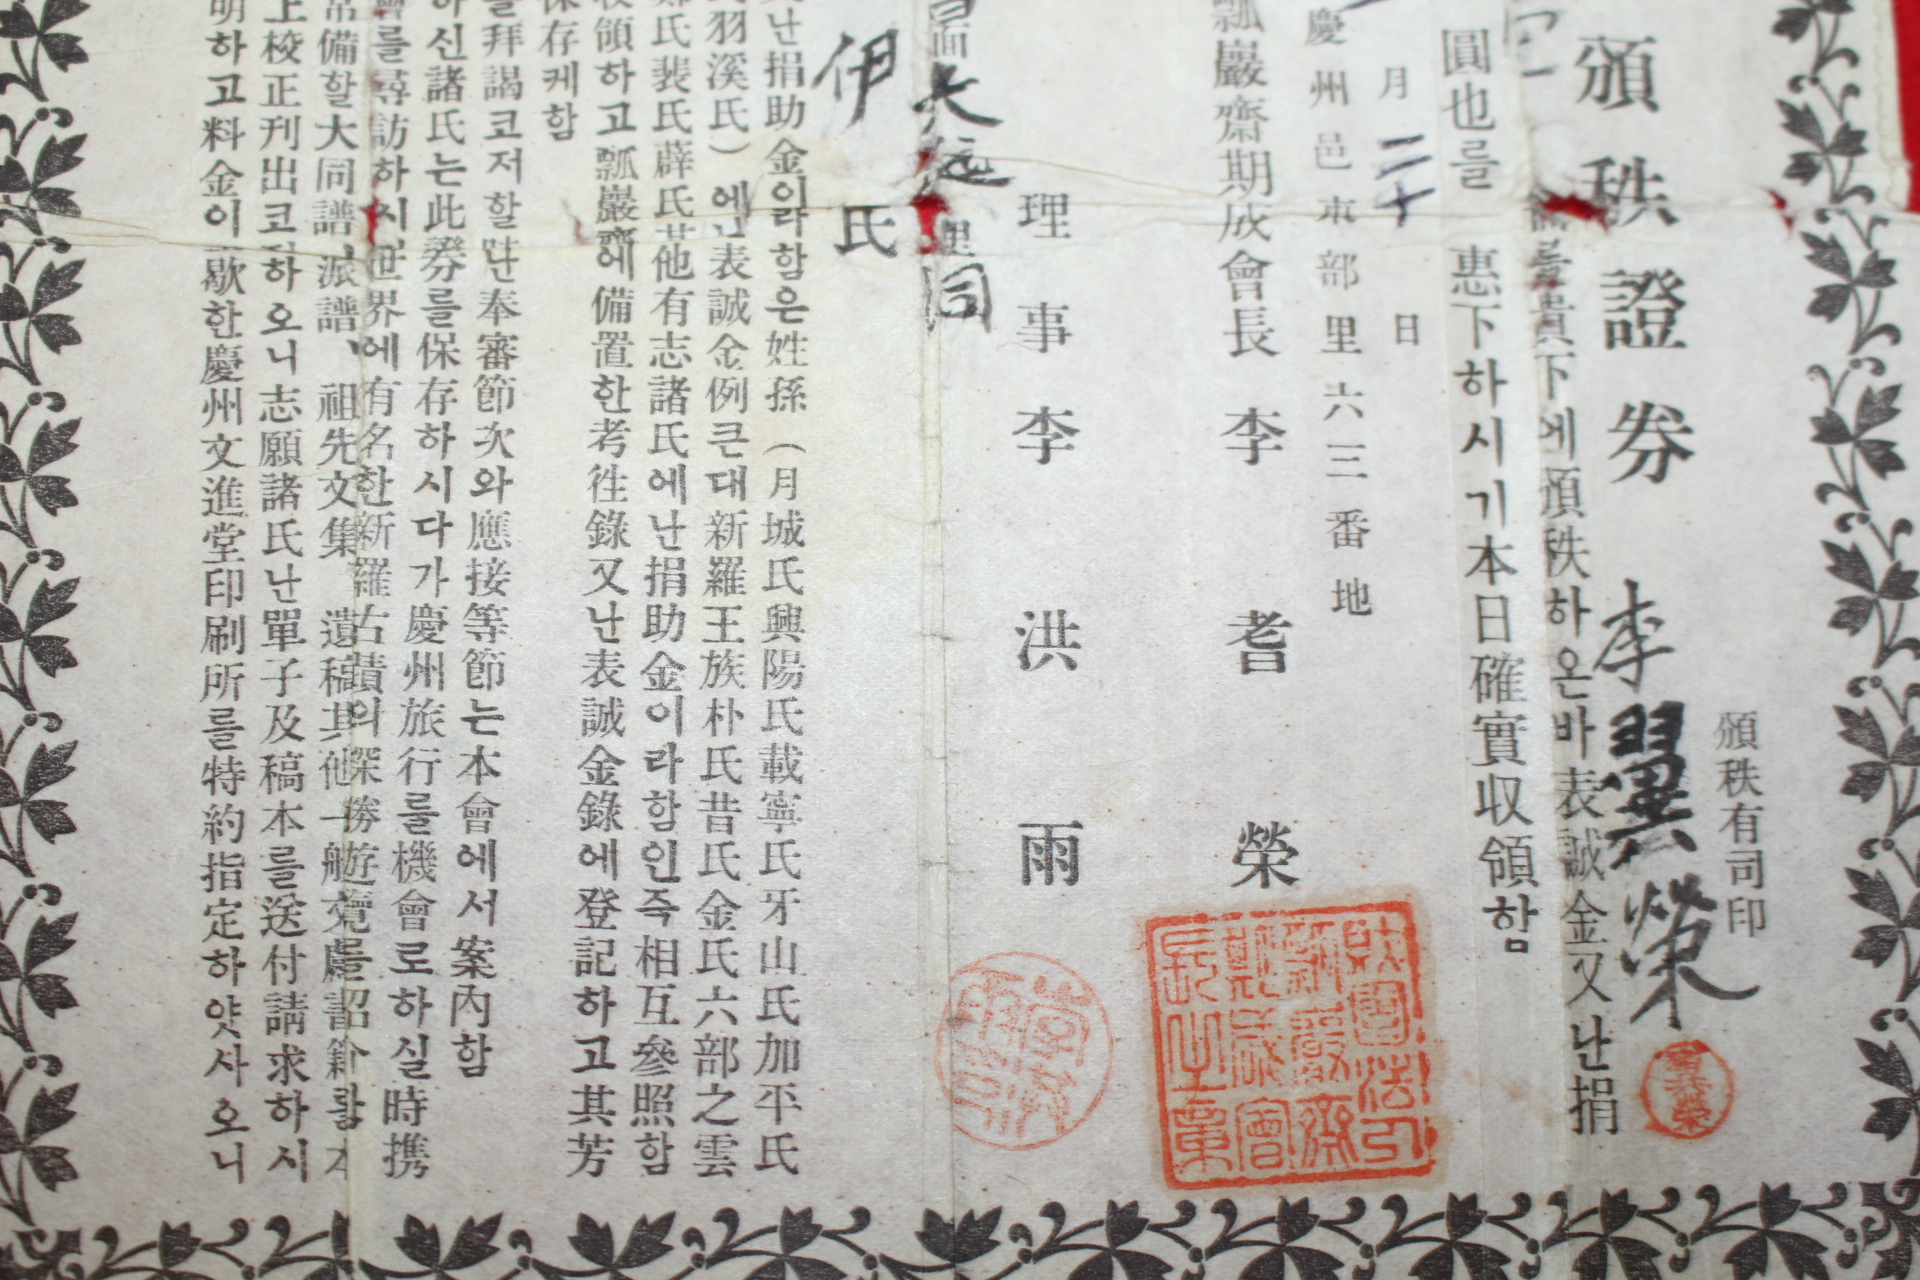 頒秩證券
頒秩有司印
李翼榮
를貴下에頒秩하온바表誠金又난捐
圓也를 惠下하시기本日確實收領함
月 二十 日
慶州邑市部里六三番地
瓢巖齋期成會長 李耆榮
理事 李洪雨
面 里 同
伊 氏
난捐助金이라함은姓孫(月城氏興陽氏載寧氏牙山氏加平氏
羽溪氏)에난表誠金例큰대新羅王族朴氏昔氏金氏六部之雲
鄭氏裴氏薛氏其他有志諸氏에난捐助金이라함인즉相互參照함
收領하고瓢巖齋에備置한考往錄又난表誠金錄에登記하고其芳
保存케함
를拜謁코저할따난奉審節次와應接等節는本會에서案內함
하신諸氏는此券를保存하시다가慶州旅行를機會로하실時携
會를尋訪하시면世界에有名한新羅古蹟의探勝遊覽를紹介함
常備할大同譜、派譜、祖先文集 遺稿其他一般
上校正刊出코저하오니志願諸氏난單子及稿本를送付請求하시
明하고料金이歇한慶州文進堂印刷所를特約指定하얏사오니